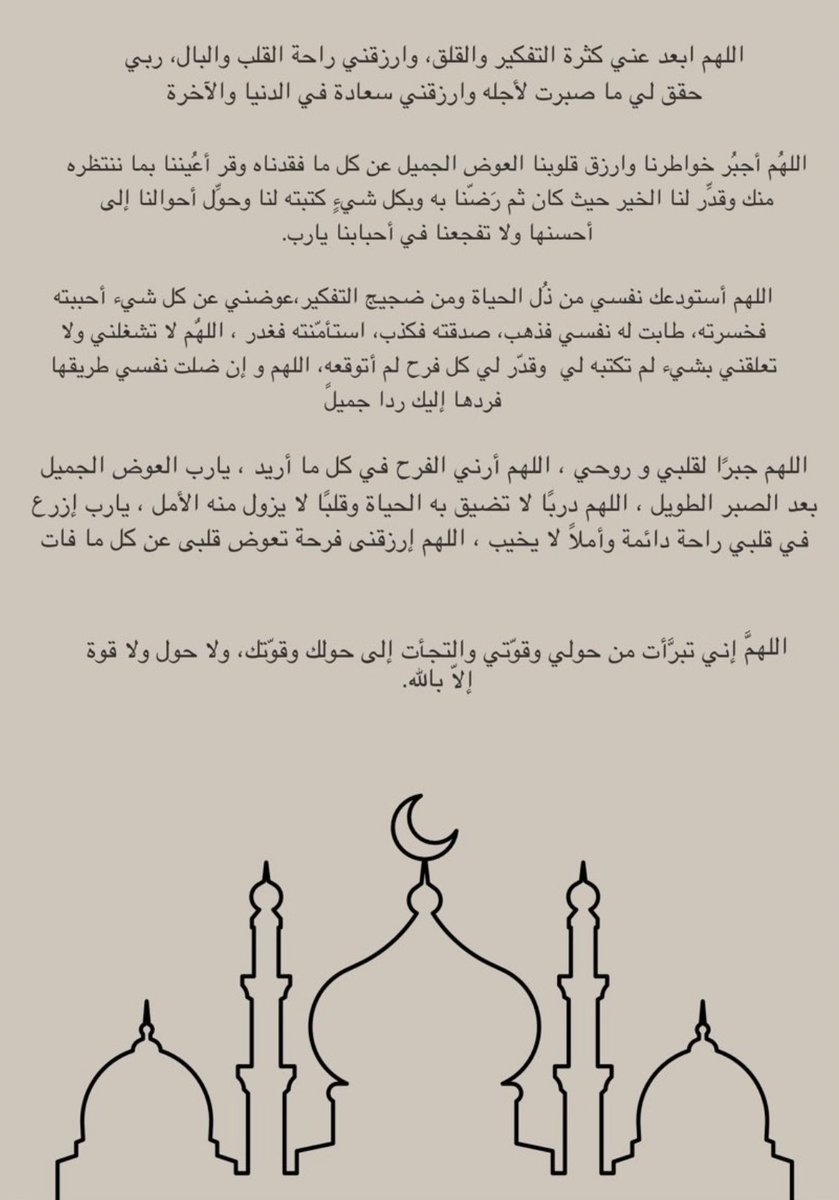 اللهم ابعد عني كثرة التفكير والقلق، وارزقني راحة القلب والبال، ربي
حقق لي ما صبرت لأجله وارزقني سعادة في الدنيا والآخرة
اللهُم أجبُر خواطرنا وارزق قلوبنا العوض الجميل عن كل ما فقدناه وقر أعُيننا بما ننتظره
منك وقدِّر لنا الخير حيث كان ثم رَضّنا به وبكل شيءٍ كتبته لنا وحوِّل أحوالنا إلى
أحسنها ولا تفجعنا في أحبابنا يارب.
اللهم أستودعك نفسي من ذُل الحياة ومن ضجيج التفكير،عوضني عن كل شيء أحببته
فخسرته، طابت له نفسي فذهب، صدقته فكذب، استأمّنته فغدر ، اللهُم لا تشغلني ولا
تعلقني بشيء لم تكتبه لي وقدّر لي كل فرح لم أتوقعه، اللهم و إن ضلت نفسي طريقها
فردها إليك ردا جميلً
اللهم جبرًا لقلبي و روحي ، اللهم أرني الفرح في كل ما أريد ، يارب العوض الجميل
بعد الصبر الطويل ، اللهم دربًا لا تضيق به الحياة وقلبًا لا يزول منه الأمل ، يارب إزرع
في قلبي راحة دائمة وأملاً لا يخيب ، اللهم إرزقنى فرحة تعوض قلبى عن كل ما فات
اللهمَّ إني تبرَّأت من حولي وقوّتي والتجأت إلى حولك وقوّتك، ولا حول ولا قوة
إلاّ بالله.